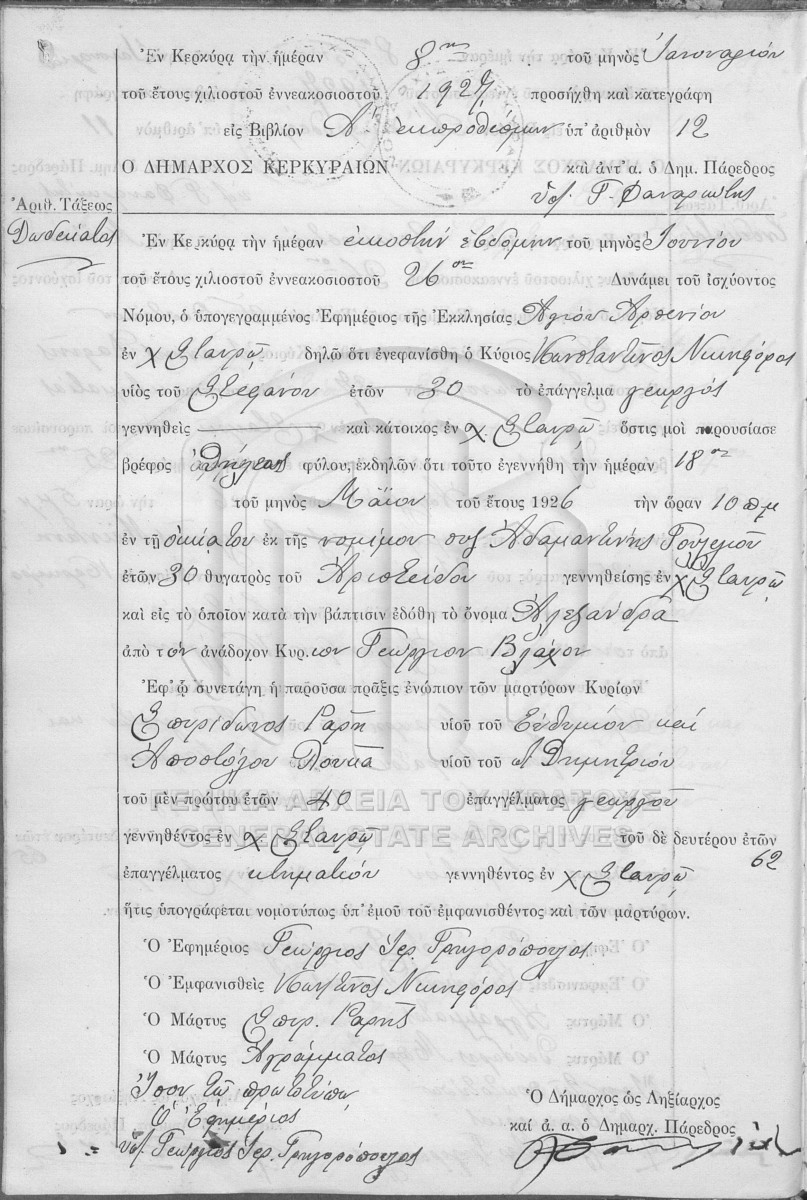 Ἐν Κερκύρᾳ τὴν ἡμέραν 8ην τοῦ μηνὸς Ἰανουαρίου
τοῦ ἔτους χιλιοστοῦ ἐννεακοσιοστοῦ 1927 προσήχθη καὶ κατεγράφη
εἰς Βιβλίον Α' ἐκπροθέσμων ὑπ' ἀριθμὸν 12
Ο ΔΗΜΑΡΧΟΣ ΚΕΡΚΥΡΑΙΩΝ καὶ ἀντ' α. ὁ Δημ. Πάρεδρος
ὑπ. Γ. Φαναριώτης
Ἀριθ. Τάξεως
Δωδέκατος
Ἐν Κερκύρᾳ τὴν ἡμέραν εἰκοστὴν ἑβδόμην τοῦ μηνὸς Ἰουνίου
τοῦ ἔτους χιλιοστοῦ ἐννεακοσιοστοῦ 26ου Δυνάμει τοῦ ἰσχύοντος
Νόμου, ὁ ὑπογεγραμμένος Ἐφημέριος τῆς Ἐκκλησίας Ἁγίου Ἀρσενίου
ἐν χ Σταυρῷ δηλῶ ὅτι ἐνεφανίσθη ὁ Κύριος Κωνσταντῖνος Νικηφόρος
υἱὸς τοῦ Στεφάνου ἐτῶν 30 τὸ ἐπάγγελμα γεωργός
γεννηθεὶς καὶ κάτοικος ἐν χ. Σταυρῷ ὅστις μοὶ παρουσίασε
βρέφος θήλεος φύλου, ἐκδηλῶν ὅτι τοῦτο ἐγεννήθη τὴν ἡμέραν 18ην
τοῦ μηνὸς Μαΐου τοῦ ἔτους 1926 τὴν ὥραν 10 πμ
ἐν τῇ οἰκίᾳ του ἐκ τῆς νομίμου συζ Ἀδαμαντίνης Γουλελιοῦ
ἐτῶν 30 θυγατρὸς τοῦ Ἀριστείδου γεννηθείσης ἐν χ Σταυρῷ
καὶ εἰς τὸ ὁποῖον κατὰ τὴν βάπτισιν ἐδόθη τὸ ὄνομα Ἀλεξάνδρα
ἀπὸ τὸν ἀνάδοχον Κύριον Γεώργιον Βλάχον
Ἐφ' ᾧ συνετάγη ἡ παροῦσα πρᾶξις ἐνώπιον τῶν μαρτύρων Κυρίων
Σπυρίδωνος Ραρῆ υἱοῦ τοῦ Εὐθυμίου καὶ
Ἀποστόλου Λουκᾶ υἱοῦ τοῦ Δημητρίου
τοῦ μὲν πρώτου ἐτῶν 40 ἐπαγγέλματος γεωργοῦ
ΓΕΝΙΚΑ ΑΡΧΕΙΑ ΤΟΥ ΚΡΑΤΟΥΣ
γεννηθέντος ἐν χ. Σταυρῷ τοῦ δὲ δευτέρου ἐτῶν 62
GENERAL STATE ARCHIVES
ἐπαγγέλματος κτηματίου γεννηθέντος ἐν χ Σταυρῷ
ἥτις ὑπογράφεται νομοτύπως ὑπ' ἐμοῦ τοῦ ἐμφανισθέντος καὶ τῶν μαρτύρων.
Ὁ Ἐφημέριος Γεώργιος Ἱερ. Γρηγορόπουλος
Ὁ Ἐμφανισθεὶς Κωνστῖνος Νικηφόρος
Ὁ Μάρτυς Σπυρ. Ραρῆς
Ὁ Μάρτυς Ἀγράμματος
Ἴσον τῷ πρωτοτύπῳ
Ὁ Ἐφημέριος
ὑπ. Γεώργιος Ἱερ. Γρηγορόπουλος
Ὁ Δήμαρχος ὡς Ληξίαρχος
καί ἀ. α. ὁ Δημαρχ. Πάρεδρος